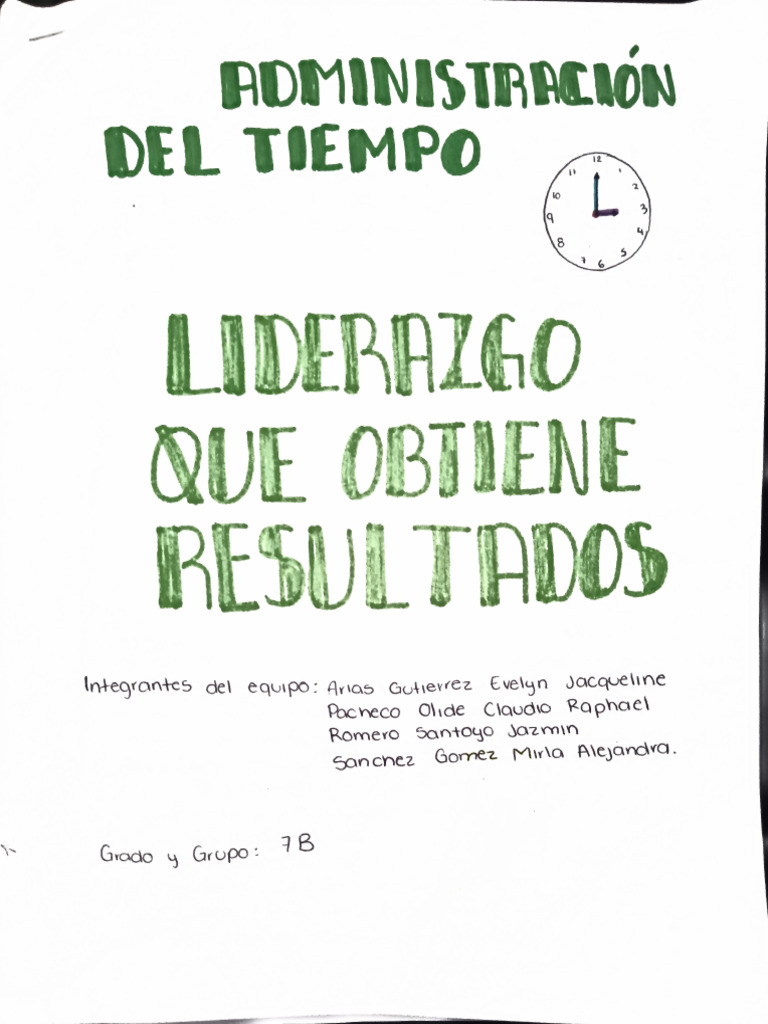 ADMINISTRACIÓN
DEL TIEMPO
12
11
1
10
2
9
3
8
4
7
5
6
LIDERAZGO
QUE OBTIENE
RESULTADOS
Integrantes del equipo: Arias Gutierrez Evelyn Jacqueline
Pacheco Olide Claudio Raphael
Romero Santoyo Jazmin
Sanchez Gomez Mirla Alejandra.
Grado y Grupo: 7B